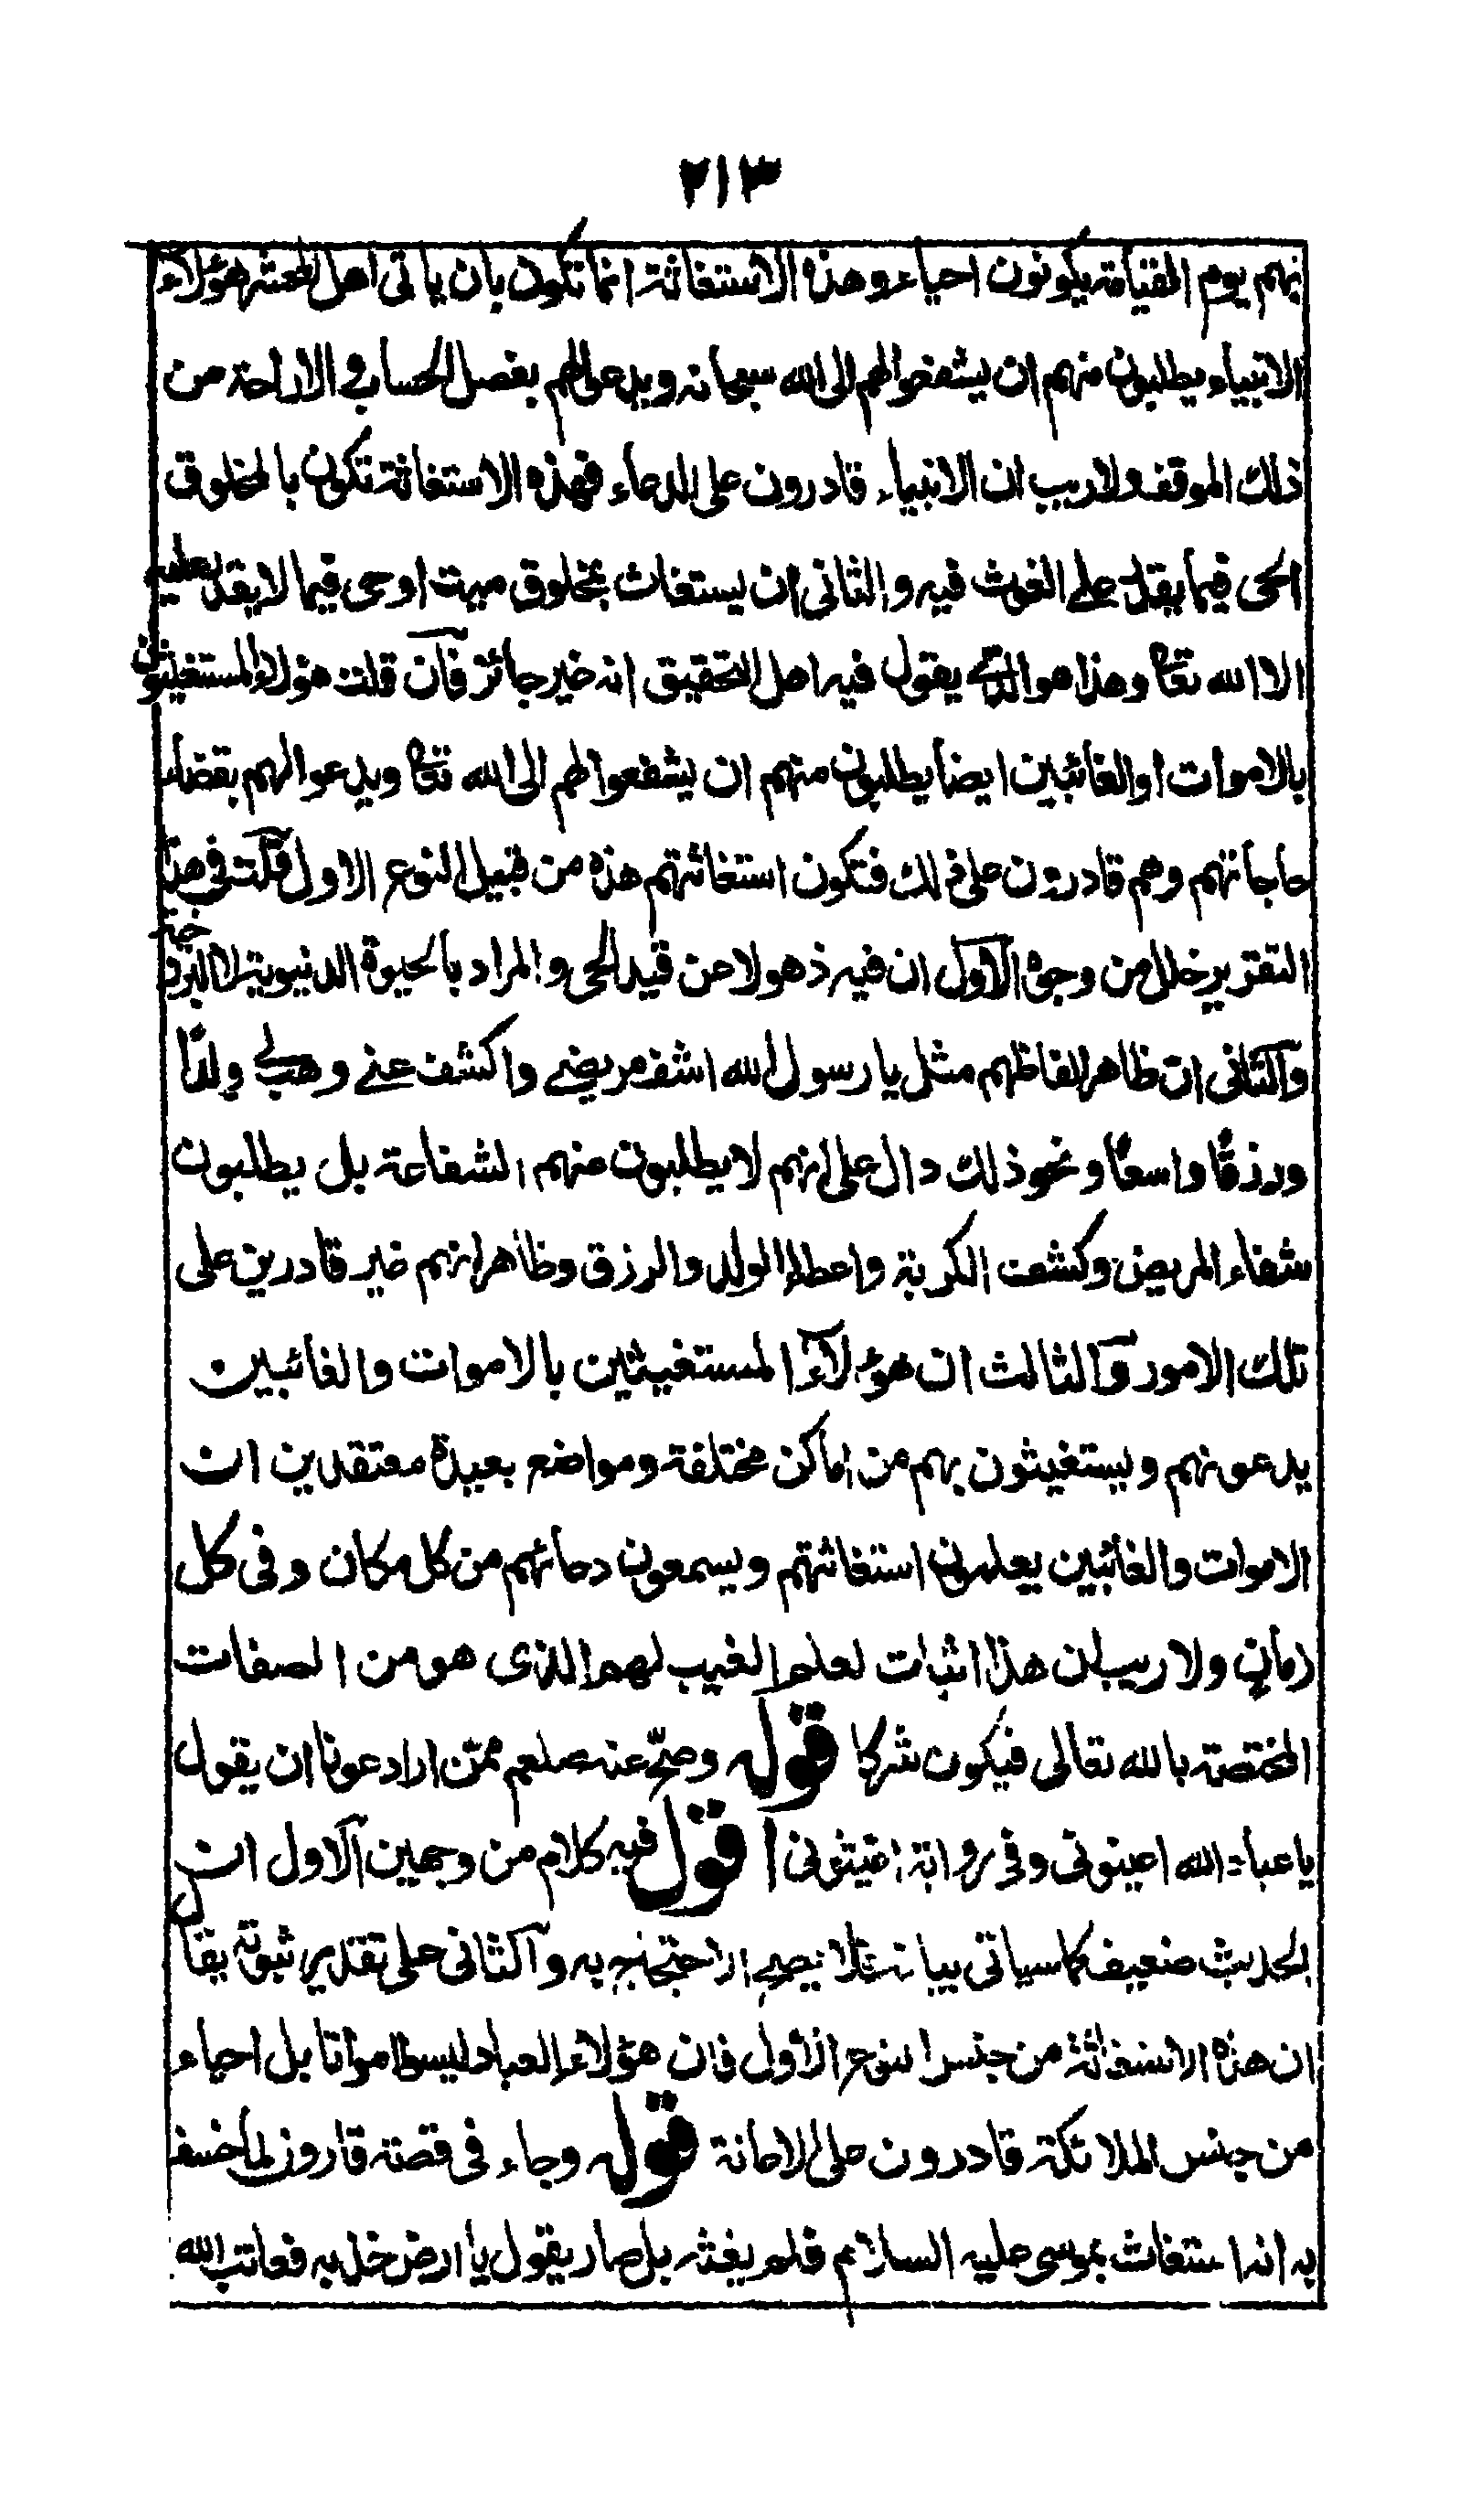 ٢١٣
نهم يوم القيامة يكونون احياء وهذه الاستغاثة انما تكون بان ياتى اهل المحشر هؤلاء
الانبياء يطلبون منهم ان يشفعوا لهم الى الله سبحانه ويدعوا لهم بفصل الحساب والاراحة من
ذلك الموقف ولا ريب ان الانبياء قادرون على الدعاء فهذه الاستغاثة تكون بالمخلوق
الحى فيما يقدر على الغوث فيه والثانى ان يستغاث بمخلوق ميت اوحى فيما لا يقدر عليه
الا الله تعا وهذا هو الذي يقول فيه اهل التحقيق انه غير جائز فان قلت هؤلاء المستغيثون
بالاموات او الغائبين ايضا يطلبون منهم ان يشفعوا لهم الى الله تعا ويدعوا لهم بقضاء
حاجاتهم وهم قادرون على ذلك فتكون استغاثتهم هذه من قبيل النوع الاول قلت فى هذا
التقرير خلل من وجوه الاول ان فيه ذهولا من قيد الحى والمراد بالحيوة الدنيوية لا البرزخية
والثانى ان ظاهر الفاظهم مثل يا رسول الله اشف مريضى واكشف عنى وهب لى ولدًا
ورزقًا واسعًا ونحو ذلك دال على انهم لا يطلبون منهم الشفاعة بل يطلبون
شفاء المريض وكشف الكربة واعطاء الولد والرزق وظاهر انهم غير قادرين على
تلك الامور والثالث ان هؤلاء المستغيثين بالاموات والغائبين
يدعونهم ويستغيثون بهم من اماكن مختلفة ومواضع بعيدة معتقدين ان
الاموات والغائبين يعلمون استغاثتهم ويسمعون دعائهم من كل مكان وفى كل
زمان ولا ريب ان هذا اثبات لعلم الغيب لهم الذى هو من الصفات
المختصة بالله تعالى فيكون شركا قوله وصحّ عنه صلعم ممّن اراد عونا ان يقول
يا عباد الله اعينونى وفى رواية اغيثونى اقول فيه كلام من وجهين الاول ان
الحديث ضعيف كما سياتى بيانه فلا يصح الاحتجاج به والثانى على تقدير ثبوته يقال
ان هذه الاستغاثة من جنس النوع الاول فان هؤلاء العباد ليسوا امواتا بل احياء
من جنس الملائكة قادرون على الاعانة قوله وجاء فى قصة قارون لما خسف
به انه استغاث بموسى عليه السلام فلم يغثه بل صار يقول يا ارض خذيه فعاتب الله